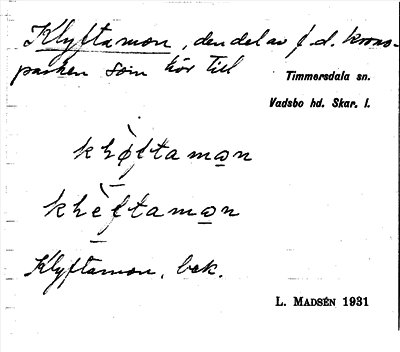 Klyftamon, den del av f. d. krono-
parken som hör till
Timmersdala sn.
Vadsbo hd. Skar. l.
Klyftamon, bek.
L. MADSÉN 1931